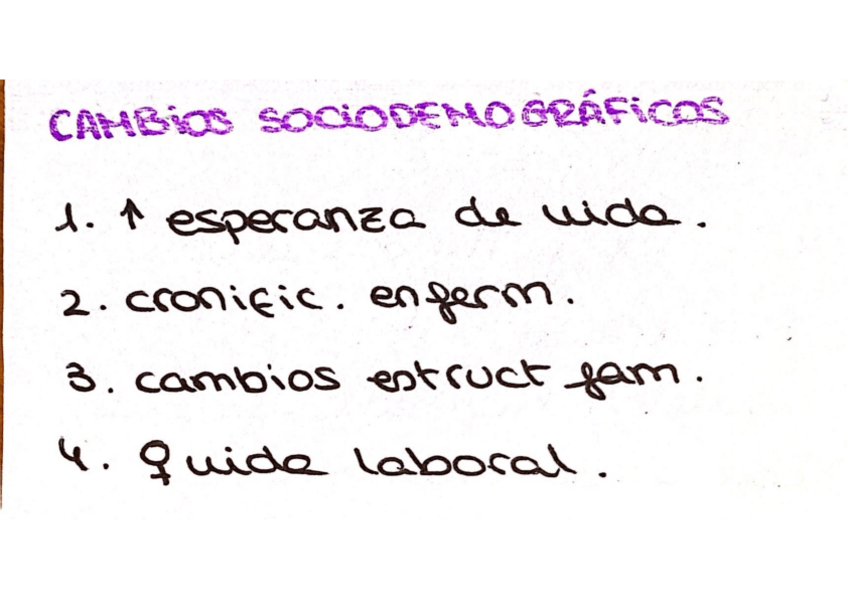 CAMBiOS SOCiODEMOGRÁFiCOS
1. ↑ esperanza de vida.
2. cronific. enferm.
3. cambios estruct fam.
4. ♀ vida laboral.